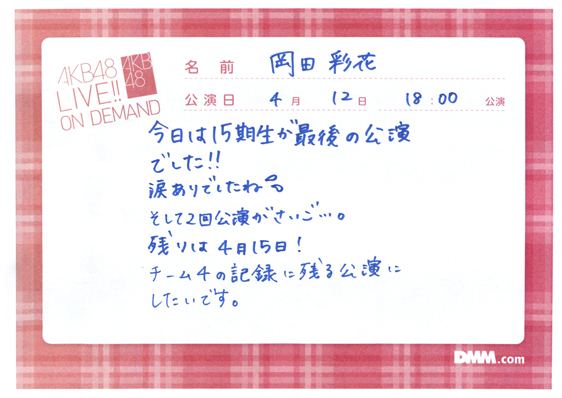 AKB48
LIVE!!
ON DEMAND
AKB
48
名前 岡田彩花
公演日 4月 12日 18:00 公演
今日は15期生が最後の公演
でした!!
涙ありでしたね
そして2回公演がさいご…。
残りは4月15日!
チーム4の記録に残る公演に
したいです。
DMM.com